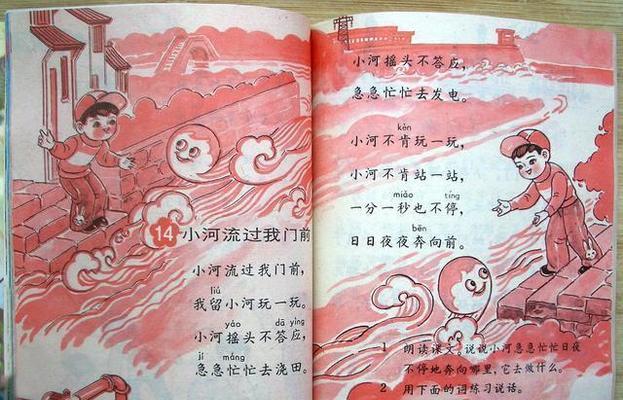 14 小河流过我门前
小河流过我门前,
liú
我留小河玩一玩。
yáo dā yìng
小河摇头不答应,
jí máng
急急忙忙去浇田。
小河摇头不答应,
急急忙忙去发电。
kěn
小河不肯玩一玩,
小河不肯站一站,
miǎo tíng
一分一秒也不停,
bēn
日日夜夜奔向前。
1 朗读课文。说说小河急急忙忙日夜
不停地奔向哪里,它去做什么。
2 用下面的词练习说话。